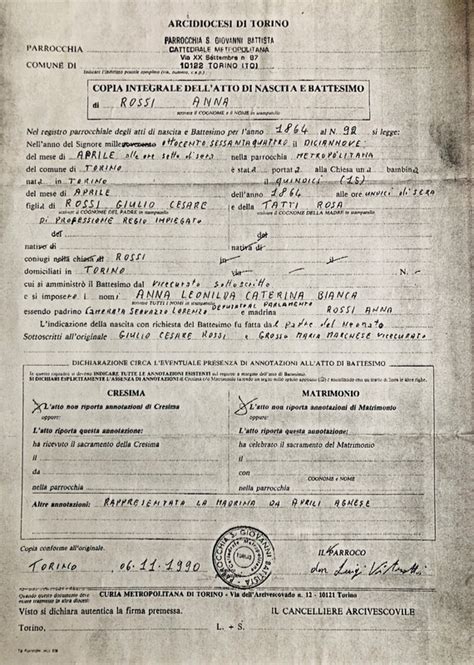 ARCIDIOCESI DI TORINO
PARROCCHIA
PARROCCHIA S. GIOVANNI BATTISTA
CATTEDRALE METROPOLITANA
Via XX Settembre n° 87
COMUNE DI
10122 TORINO (TO)
Indicare l'indirizzo postale completo (via, numero, c.a.p.)
COPIA INTEGRALE DELL'ATTO DI NASCITA E BATTESIMO
di ROSSI ANNA
scrivere il COGNOME e il NOME in stampatello
Nel registro parrocchiale degli atti di nascita e Battesimo per l'anno 1864 al N. 92 si legge:
Nell'anno del Signore mille OTTOCENTO SESSANTAQUATTRO il DICIANNOVE
del mese di APRILE alle ore sette di sera nella parrocchia METROPOLITANA
del comune di TORINO è stata portata alla Chiesa una bambina
nata in TORINO il QUINDICI (15)
del mese di APRILE dell'anno 1864 alle ore UNDICI di SERA
figlia di ROSSI GIULIO CESARE e della TATTI ROSA
scrivere il COGNOME DEL PADRE in stampatello scrivere il COGNOME DELLA MADRE in stampatello
DI PROFESSIONE REGIO IMPIEGATO
del del
nativo di nativa di
coniugi ROSSI in
domiciliati in TORINO via N.
cui si amministrò il Battesimo dal VICECURATO SOTTOSCRITTO
e si impose i nomi ANNA LEONILDA CATERINA BIANCA
scrivere TUTTI I NOMI in stampatello
DEPUTATO AL PARLAMENTO
essendo padrino SERVAZIO LORENZO e madrina ROSSI ANNA
L'indicazione della nascita con richiesta del Battesimo fu fatta dal Padre del Neonato
Sottoscritti all'originale: GIULIO CESARE ROSSI e GROSSO MARIA MARCHESE VICECURATO
DICHIARAZIONE CIRCA L'EVENTUALE PRESENZA DI ANNOTAZIONI ALL'ATTO DI BATTESIMO
In questo riquadro si devono INDICARE TUTTE LE ANNOTAZIONI ESISTENTI sul registro a margine dell'atto di Battesimo.
CRESIMA MATRIMONIO
L'atto non riporta annotazioni di Cresima L'atto non riporta annotazioni di Matrimonio
oppure: oppure:
L'atto riporta questa annotazione: L'atto riporta questa annotazione:
ha ricevuto il sacramento della Cresima ha celebrato il sacramento del Matrimonio
il il
da con
COGNOME e NOME
nella parrocchia nella parrocchia
Altre annotazioni: RAPPRESENTATA LA MADRINA DA AVRILI AGNESE
Copia conforme all'originale.
PARROCCHIA S. GIOVANNI BATTISTA
TORINO
IL PARROCO
TORINO 06.11.1990 don Luigi
CURIA METROPOLITANA DI TORINO - Via dell'Arcivescovado n. 12 - 10121 Torino
Visto si dichiara autentica la firma premessa. IL CANCELLIERE ARCIVESCOVILE
Torino, L. + S.